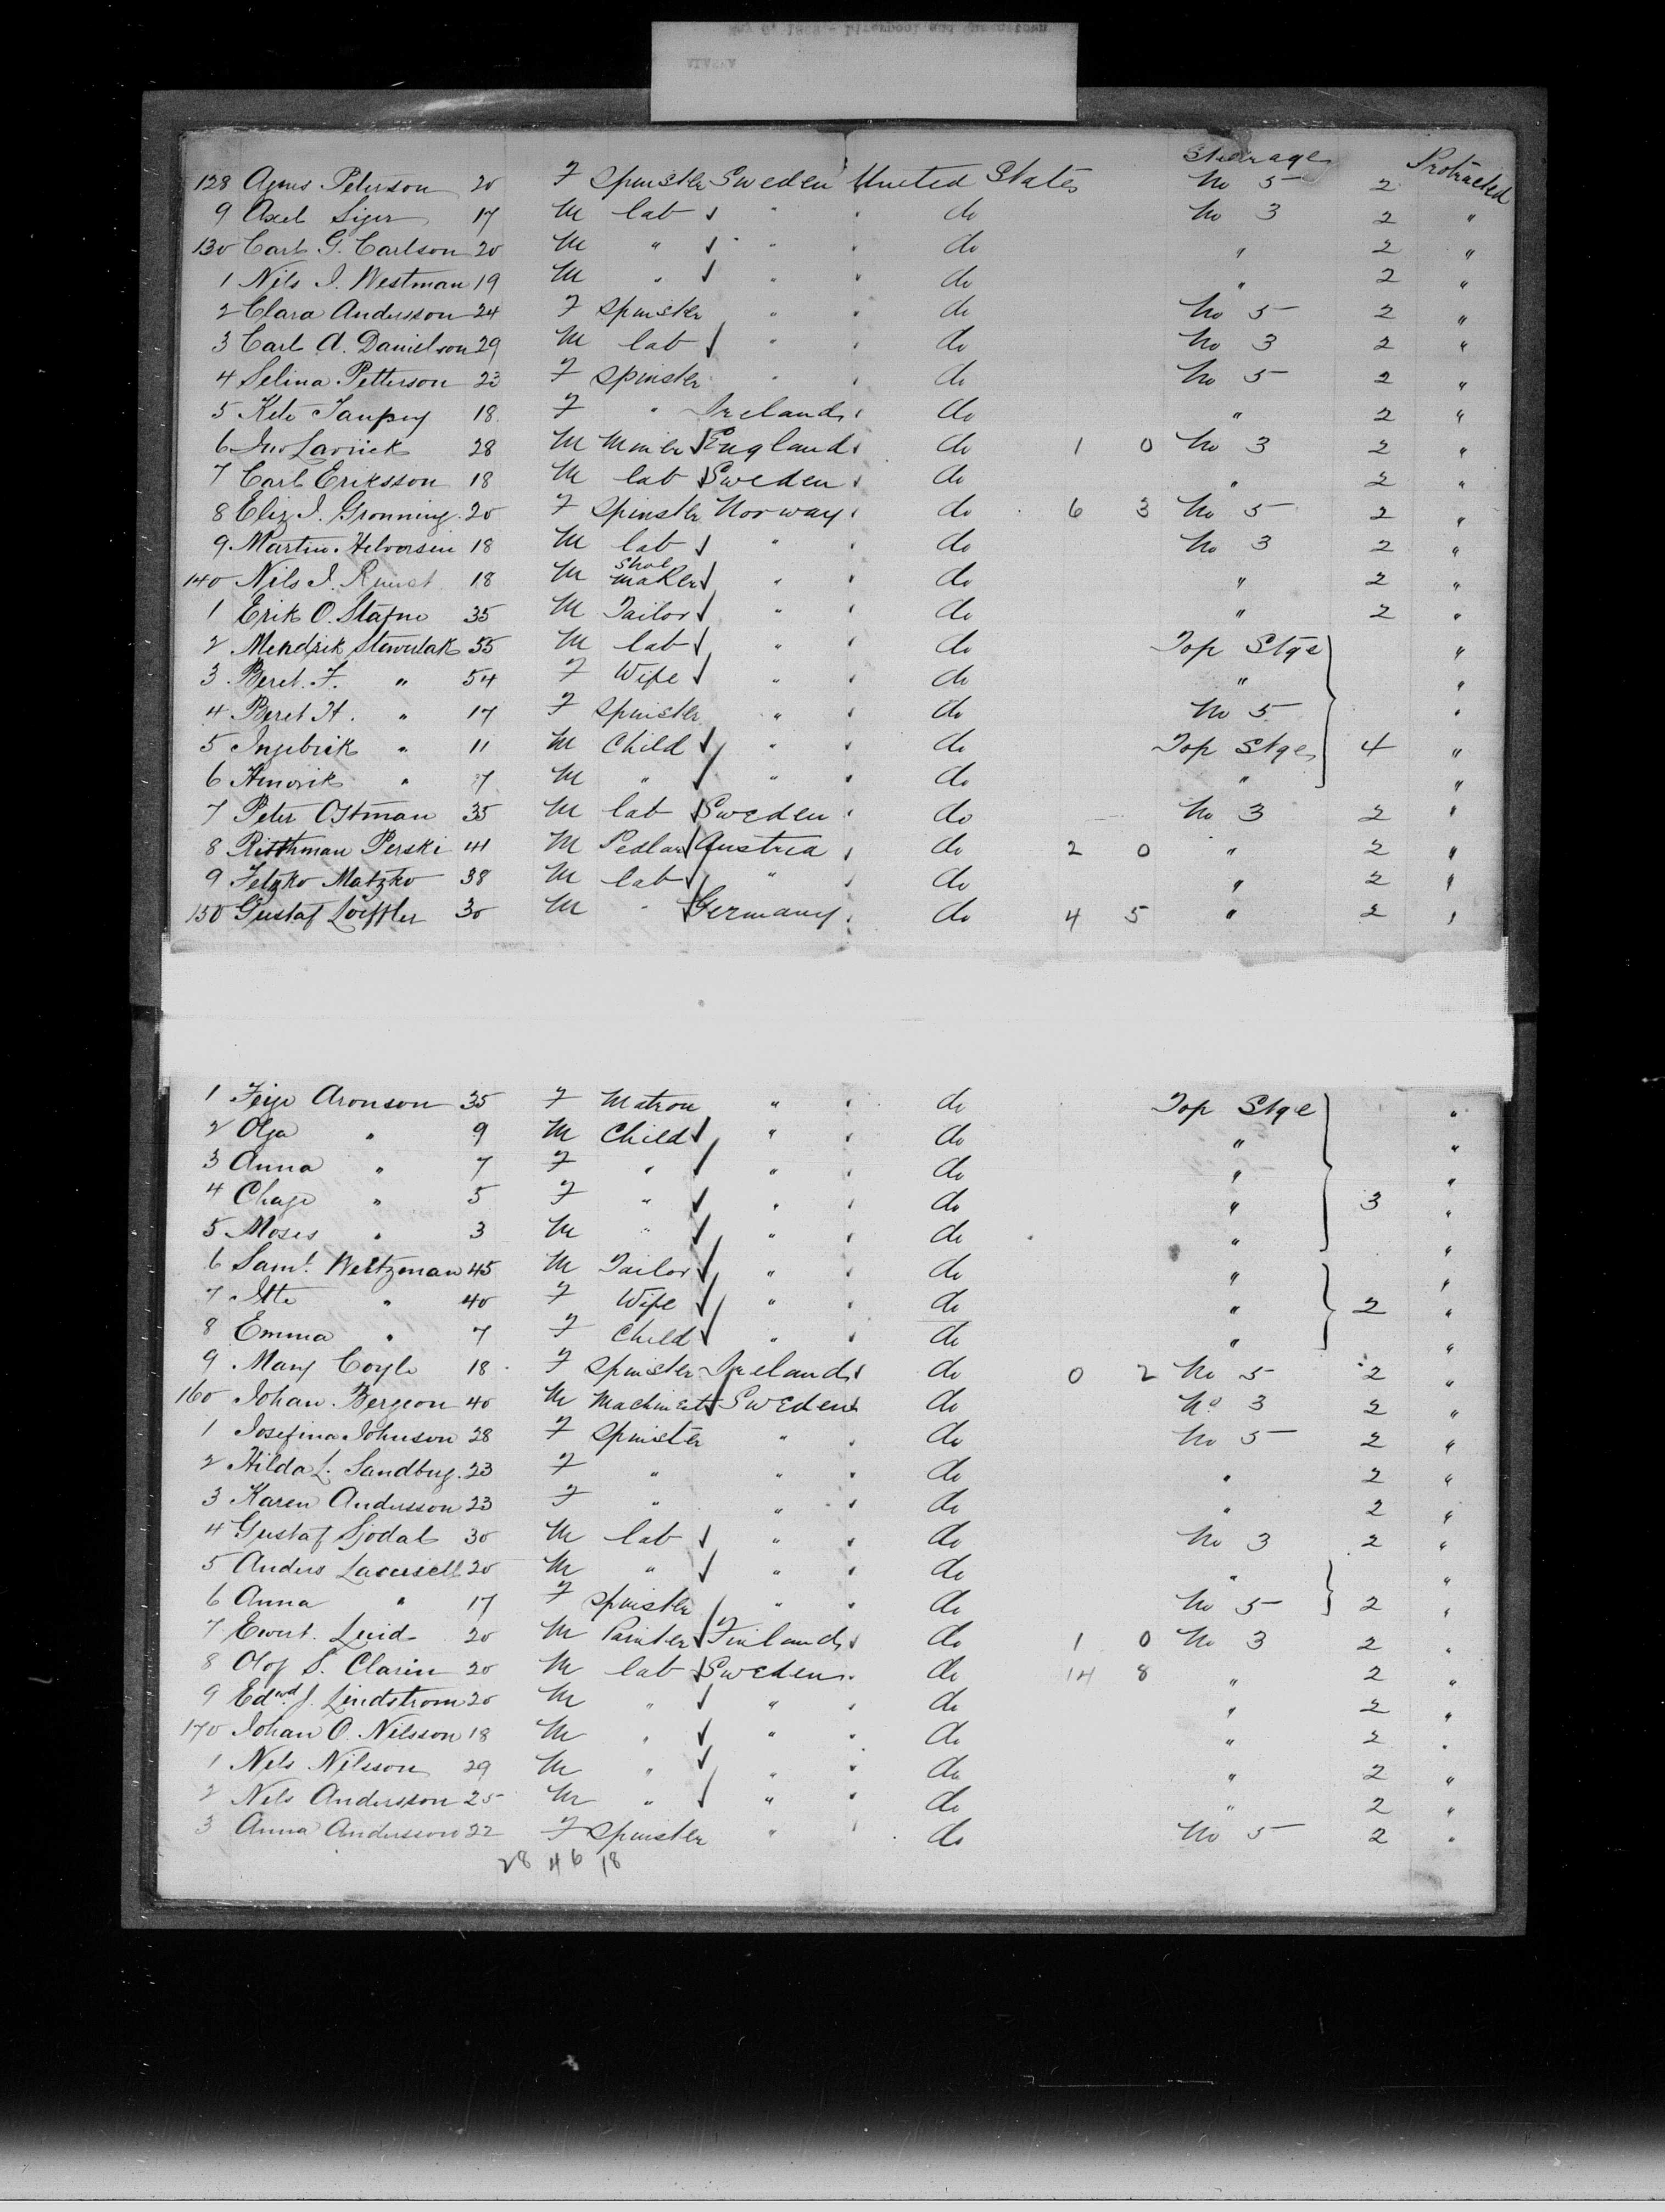 Steerage Protracted
128 Agnes Peterson 20 F Spinster Sweden United States No 5 2
9 Axel 17 M lab " " do No 3 2 "
130 Carl G. Carlson 20 M " " " do " 2 "
1 Nils J. Westman 19 M " " " do " 2 "
2 Clara Andersson 24 F Spinster " " do No 5 2 "
3 Carl A. Danielson 29 M lab " " do No 3 2 "
4 Selina Petterson 23 F Spinster " " do No 5 2 "
5 Kate 18 F " Ireland " do " 2 "
6 Jno 28 M Miner England " do 1 0 No 3 2 "
7 Carl Eriksson 18 M lab Sweden " do " 2 "
8 Eliz J. Gronning 20 F Spinster Norway " do 6 3 No 5 2 "
9 Martin Halvorsen 18 M lab " " do No 3 2 "
140 Nils J. 18 M Shoe maker " " do " 2 "
1 Erik O. Stafne 35 M Tailor " " do " 2 "
2 55 M lab " " do Top Stge "
3 Beret F. " 54 F Wife " " do " "
4 Beret H. " 17 F Spinster " " do No 5 "
5 Ingebrik " 11 M Child " " do Top Stge 4 "
6 Hendrik " 7 M " " " do " "
7 Peter Ostman 35 M lab Sweden " do No 3 2 "
8 Perski 41 M Pedlar Austria " do 2 0 " 2 "
9 Matzko 38 M lab " " do " 2 "
150 Gustaf Loffler 30 M " Germany " do 4 5 " 2 "
1 Feige Aronson 35 F Matron " " do Top Stge "
2 Olga " 9 M Child " " do " "
3 Anna " 7 F " " " do " "
4 Chaje " 5 F " " " do " 3 "
5 Moses " 3 M " " " do " "
6 Saml. Weltzman 45 M Tailor " " do " "
7 Itte " 40 F Wife " " do " 2 "
8 Emma " 7 F Child " " do " "
9 Mary Coyle 18 F Spinster Ireland " do 0 2 No 5 2 "
160 Johan Bergeon 40 M Machinist Sweden " do No 3 2 "
1 Josefina Johnson 28 F Spinster " " do No 5 2 "
2 Hilda L. Sandberg 23 F " " " do " 2 "
3 Karen Andersson 23 F " " " do " 2 "
4 Gustaf Sjodal 30 M lab " " do No 3 2 "
5 Anders 20 M " " " do " "
6 Anna " 17 F Spinster " " do No 5 2 "
7 Evert 20 M Painter Finland " do 1 0 No 3 2 "
8 Olof S. Clarin 20 M lab Sweden " do 14 8 " 2 "
9 Edwd J. Lindstrom 20 M " " " do " 2 "
170 Johan O. Nilsson 18 M " " " do " 2 "
1 Nels Nilsson 29 M " " " do " 2 "
2 Nels Andersson 25 M " " " do " 2 "
3 Anna Andersson 22 F Spinster " " do No 5 2 "
28 46 18